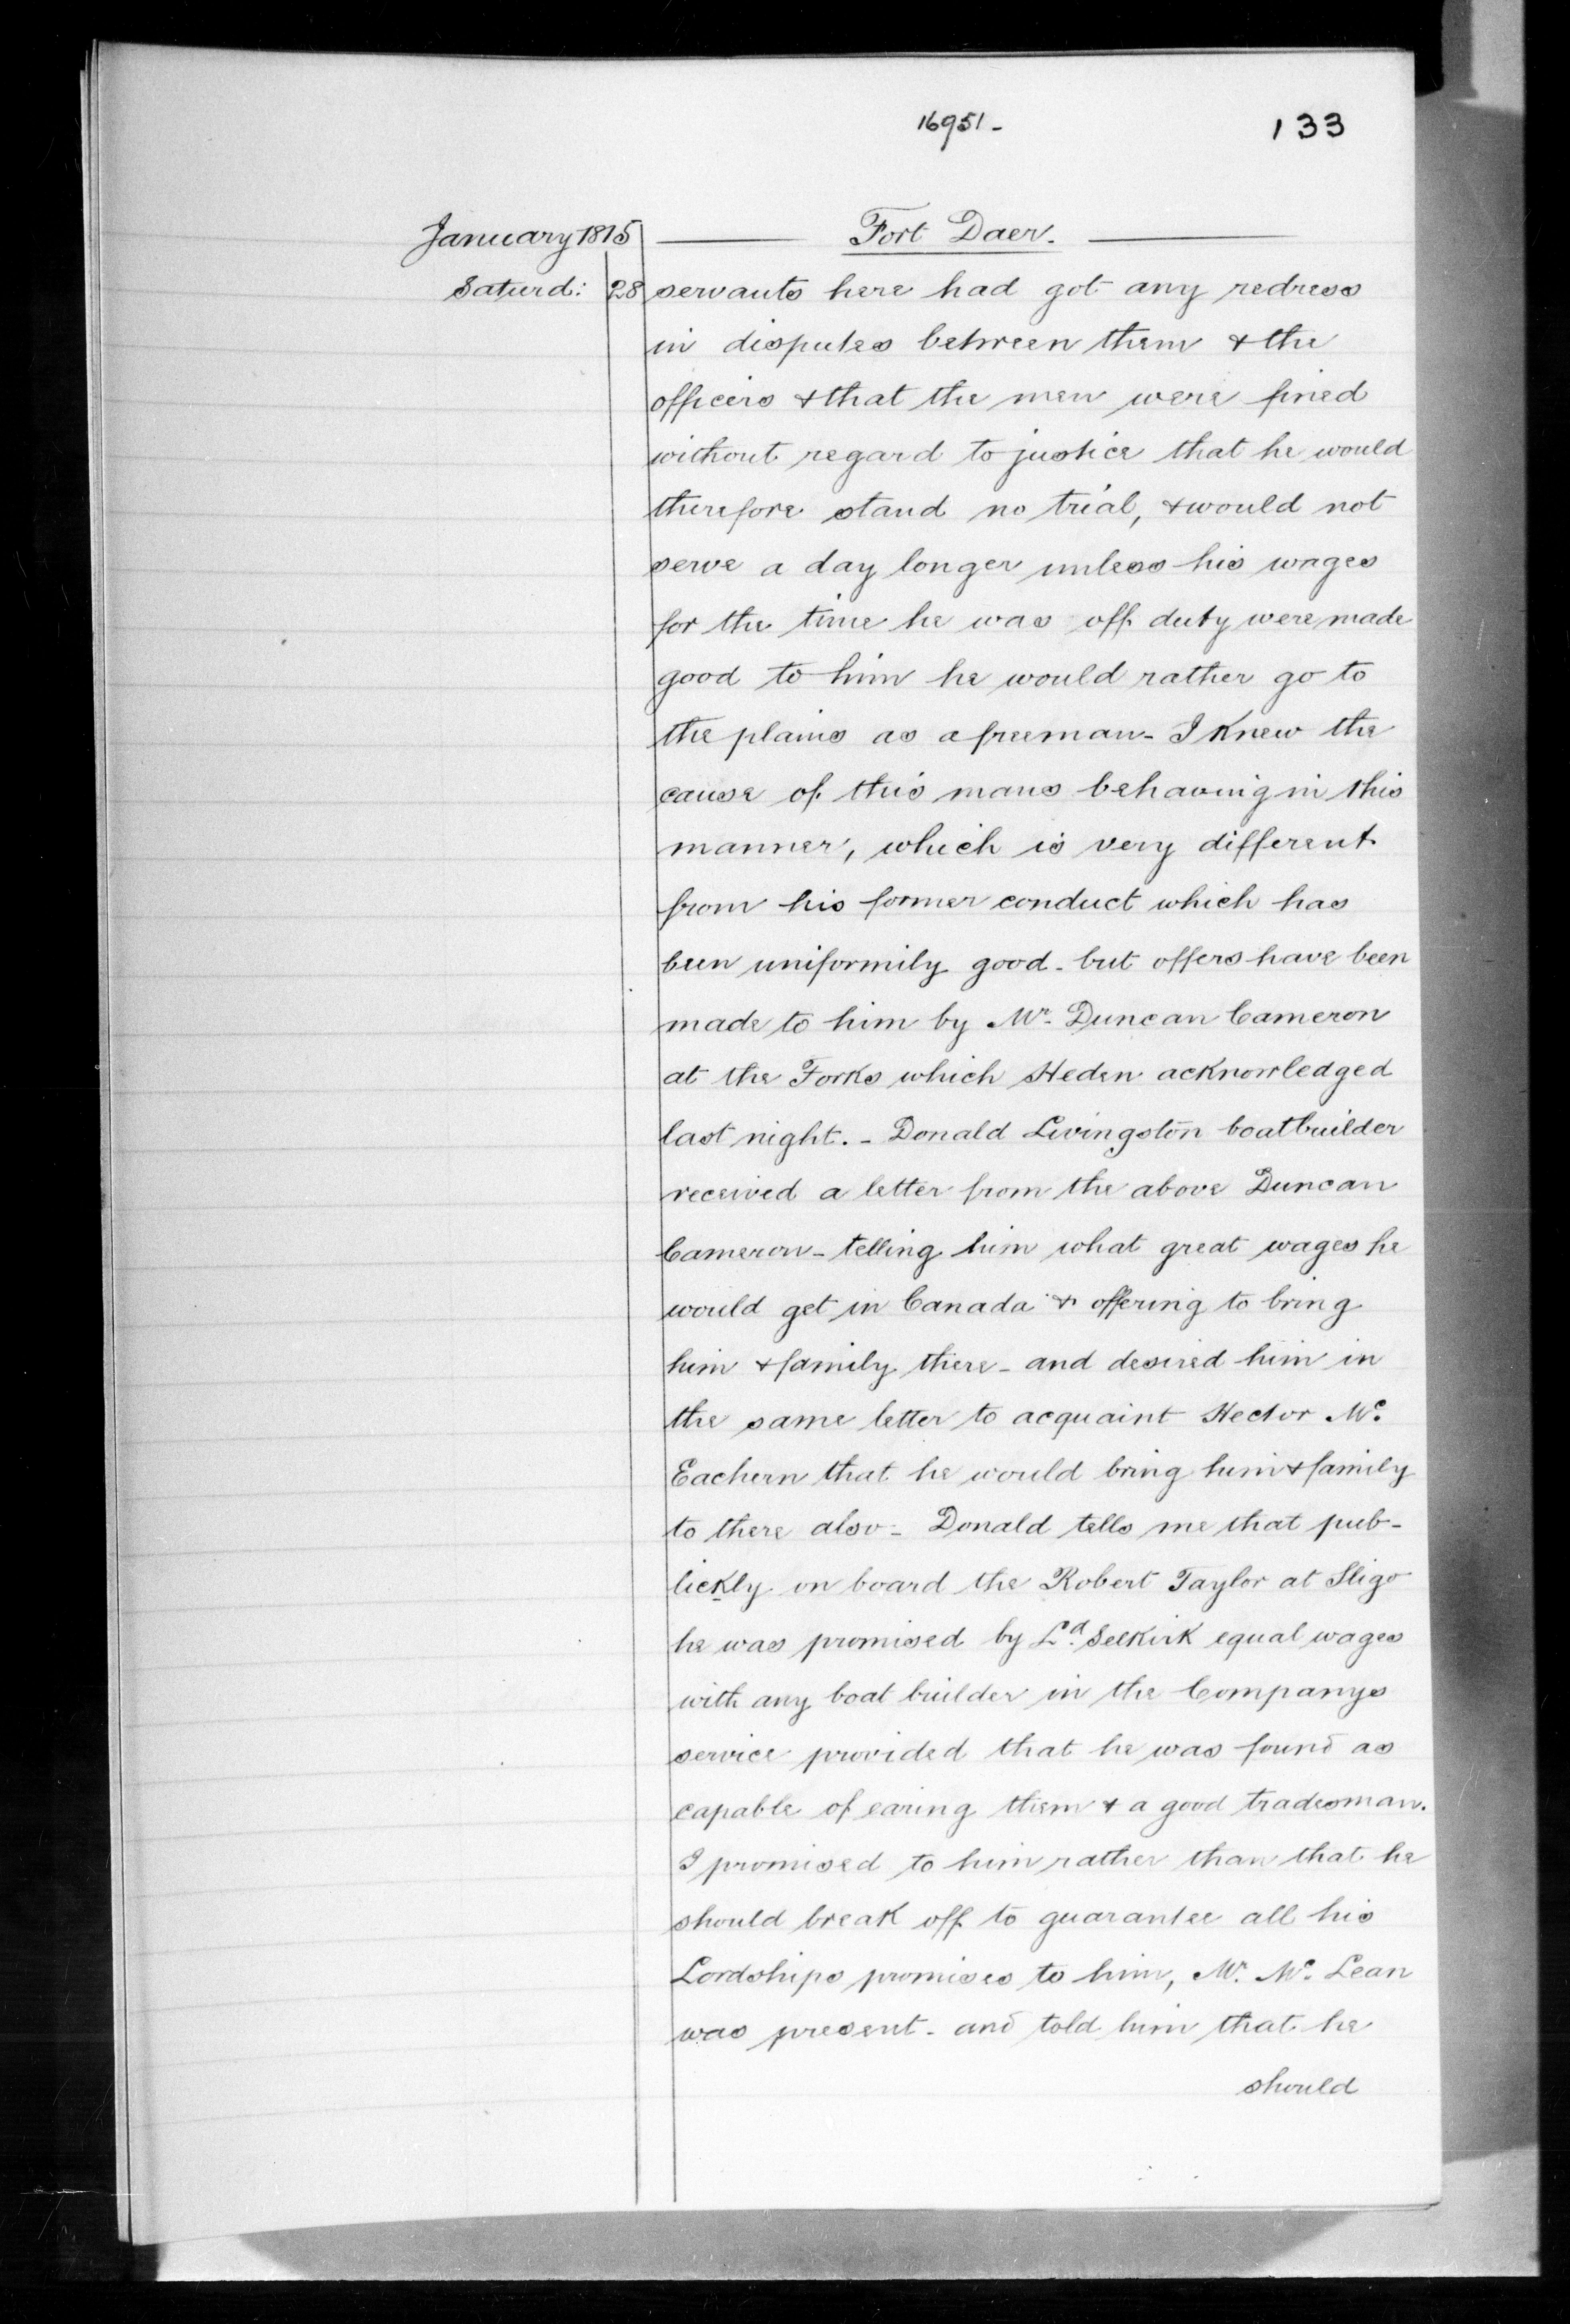 16951-
133
January 1815 Fort Daer.
Saturd: 28 servants here had got any redress
in disputes between them & the
officers & that the men were fined
without regard to justice that he would
therefore stand no trial, & would not
serve a day longer unless his wages
for the time he was off duty were made
good to him he would rather go to
the plains as a freeman - I knew the
cause of this mans behaving in this
manner, which is very different
from his former conduct which has
been uniformily good - but offers have been
made to him by Mr. Duncan Cameron
at the Forks which Heden acknowledged
last night. - Donald Livingston boatbuilder
received a letter from the above Duncan
Cameron - telling him what great wages he
would get in Canada & offering to bring
him & family there - and desired him in
the same letter to acquaint Hector Mc.
Eachern that he would bring him & family
to there also - Donald tells me that pub-
lickly on board the Robert Taylor at Sligo
he was promised by Ld. Selkirk equal wages
with any boat builder in the Companys
service provided that he was found as
capable of earing them & a good tradesman.
I promised to him rather than that he
should break off to guarantee all his
Lordships promises to him, Mr. Mc. Lean
was present - and told him that he
should